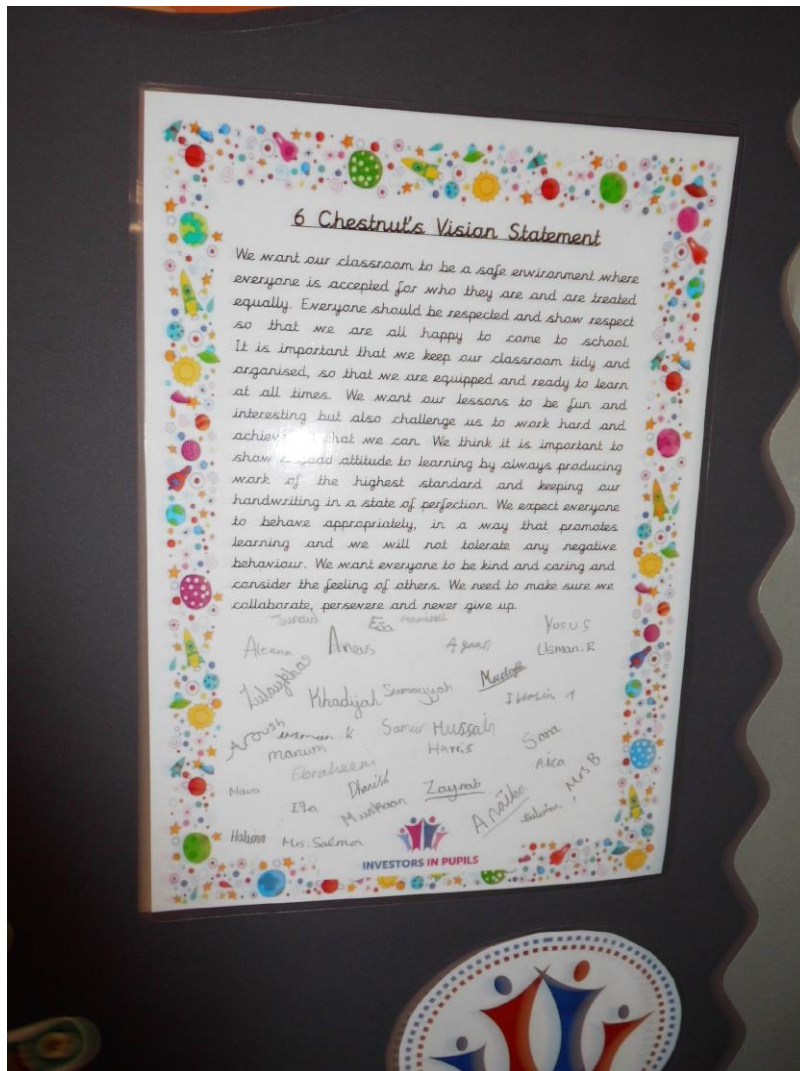 6 Chestnut's Vision Statement
We want our classroom to be a safe environment where
everyone is accepted for who they are and are treated
equally. Everyone should be respected and show respect
so that we are all happy to come to school.
It is important that we keep our classroom tidy and
organised, so that we are equipped and ready to learn
at all times. We want our lessons to be fun and
interesting but also challenge us to work hard and
that we can. We think it is important to
show attitude to learning by always producing
work of the highest standard and keeping our
handwriting in a state of perfection. We expect everyone
to behave appropriately, in a way that promotes
learning and we will not tolerate any negative
behaviour. We want everyone to be kind and caring and
consider the feeling of others. We need to make sure we
collaborate, persevere and never give up.
Junaid Esa
Aleena Anas Ayaan Usman.R
Zulaykhas Khadijah Sumayyah
Hussain
Harris Sara
Ebraheem Aica
Dhanish Zaynab Mrs B
Muskaan
Halima Mrs. Salmon
INVESTORS IN PUPILS